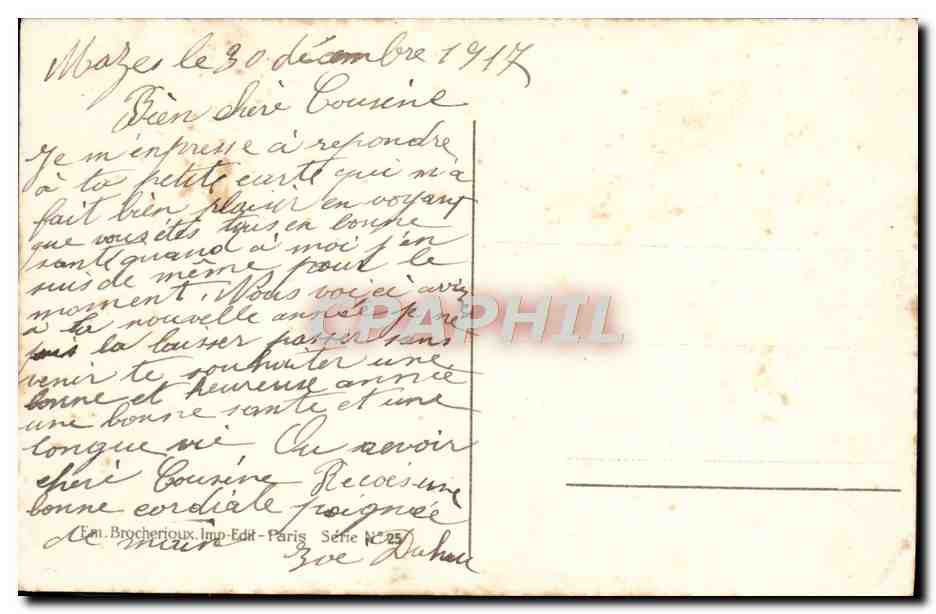 Mazes le 30 décembre 1917
Bien cheré Cousine
Je m'enpresse a repondre
à ta petite carte qui m'a
fait bien plaisir en voyant
que vous étes tous en bonne
santé quand a moi j'en
suis de même pour le
moment. Nous voici arriv
a la nouvelle année je ne
puis la laisser passer sans
venir te souhaiter une
bonne et heureuse année
une bonne sante et une
longue vie Au revoir
cheré Cousine Recois une
bonne cordiale poignée
de main Zoe
Em. Brocherioux. Imp-Edit - Paris Série N° 25
CPAPHIL